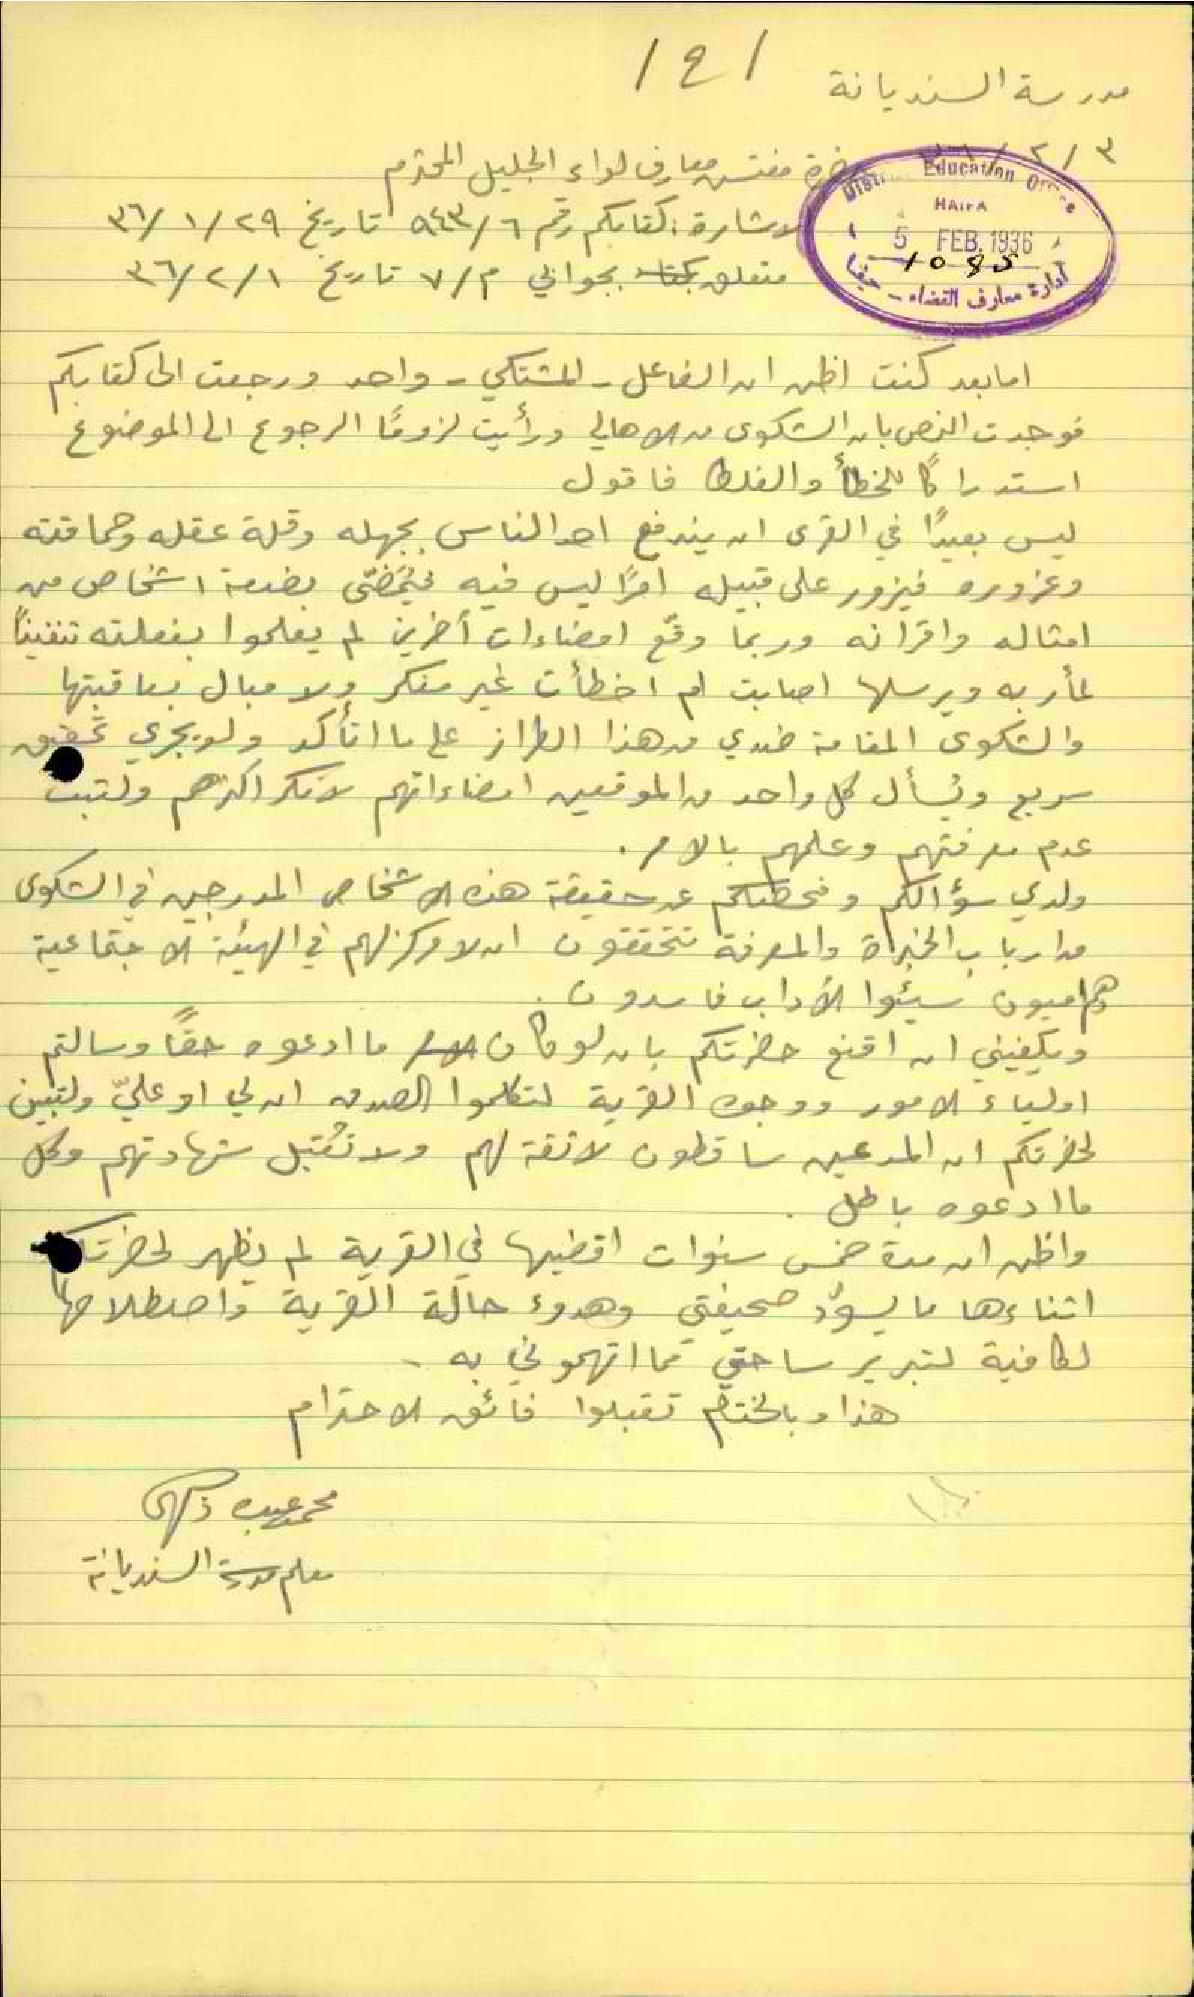 ١٤١
مدرسة السنديانة
٣ / ٢ / ٣٦
حضرة مفتش معارف لواء الجليل المحترم
District Education Office
HAIFA
5 FEB. 1936
1085
ادارة معارف القضاء - حيفا
الاشارة: كتابكم رقم ٩٤٣/٦ تاريخ ٣٦/١/٢٩
متعلق بجوابي م/٧ تاريخ ٣٦/٢/١
اما بعد كنت اظن ان الفاعل - المشتكي - واحد ورجعت الى كتابكم
فوجدت النص بان الشكوى من الاهالي ورأيت لزومًا الرجوع الى الموضوع
استدراكًا للخطأ والغلط فاقول
ليس بعيدًا في القرى ان يندفع احد الناس بجهله وقلة عقله وحماقته
وغروره فيزور على قبيله امرًا ليس فيه فيُمَضّى بضعة اشخاص من
امثاله واقرانه وربما وقّع امضاءات أخرين لم يعلموا بفعلته تنفيذًا
لمأربه ويرسلها اصابت ام اخطأت غير مفكر ولا مبال بعاقبتها
والشكوى المقامة ضدي من هذا الطراز على ما اتأكد ولو يجري تحقيق
سريع ويُسأل كل واحد من الموقعين امضاءاتهم لانكر اكثرهم ولثبت
عدم معرفتهم وعلمهم بالامر.
ولدي سؤالكم وفحصكم عن حقيقة هذه الاشخاص المدرجين في الشكوى
من ارباب الخبراة والمعرفة تتحققون ان لا مركز لهم في الهيئة الاجتماعية
وهم اميون سيئوا الأداب فاسدون.
ويكفيني ان اقنع حضرتكم بان لو كان ما ادعوه حقًا وسالتم
اولياء الامور ووجوه القرية لتكلموا الصدق ان لي او عليّ ولتبين
لحضرتكم ان المدعين ساقطون لا ثقة لهم ولا تُقبل شهادتهم وكل
ما ادعوه باطل.
واظن ان مدة خمس سنوات اقضيها في القرية لم يظهر لحضرتكم
اثناءها ما يسوّد صحيفتي وهدوء حالة القرية واصطلاحها
لكافية لتبرير ساحتي مما اتهموني به.
هذا وبالختام تقبلوا فائق الاحترام
محمد عبده
معلم مدرسة السنديانة